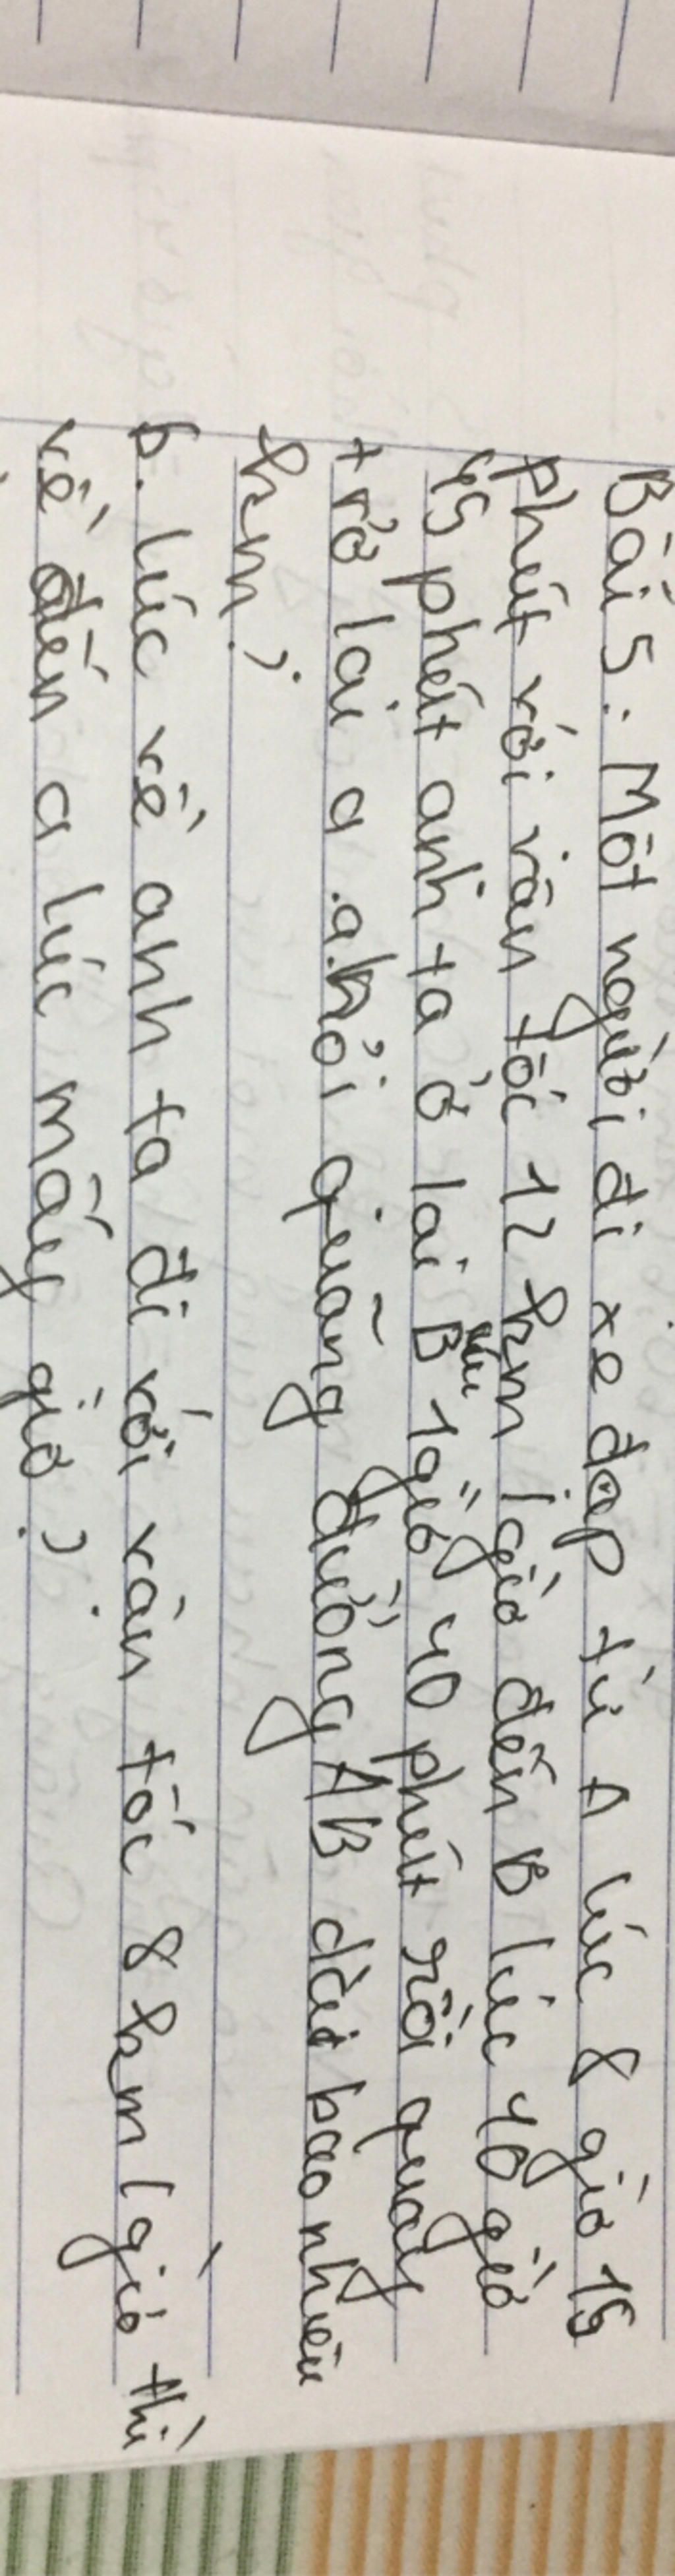 Bài 5: Một người đi xe đạp từ A lúc 8 giờ 15
phút với vận tốc 12 km/giờ đến B lúc 10 giờ
45 phút anh ta ở lại B 1 giờ 40 phút rồi quay
trở lại a a.hỏi quãng đường AB dài bao nhiêu
km?
b. lúc về anh ta đi với vận tốc 8 km/giờ thì
về đến a lúc mấy giờ?